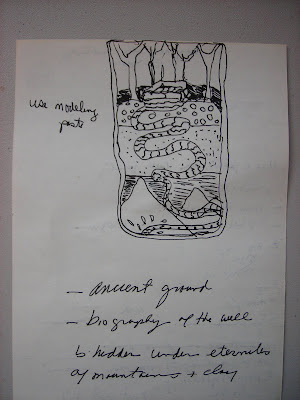 use modeling
paste
– ancient ground
– biography of the well
is hidden under eternities
of mountains + clay